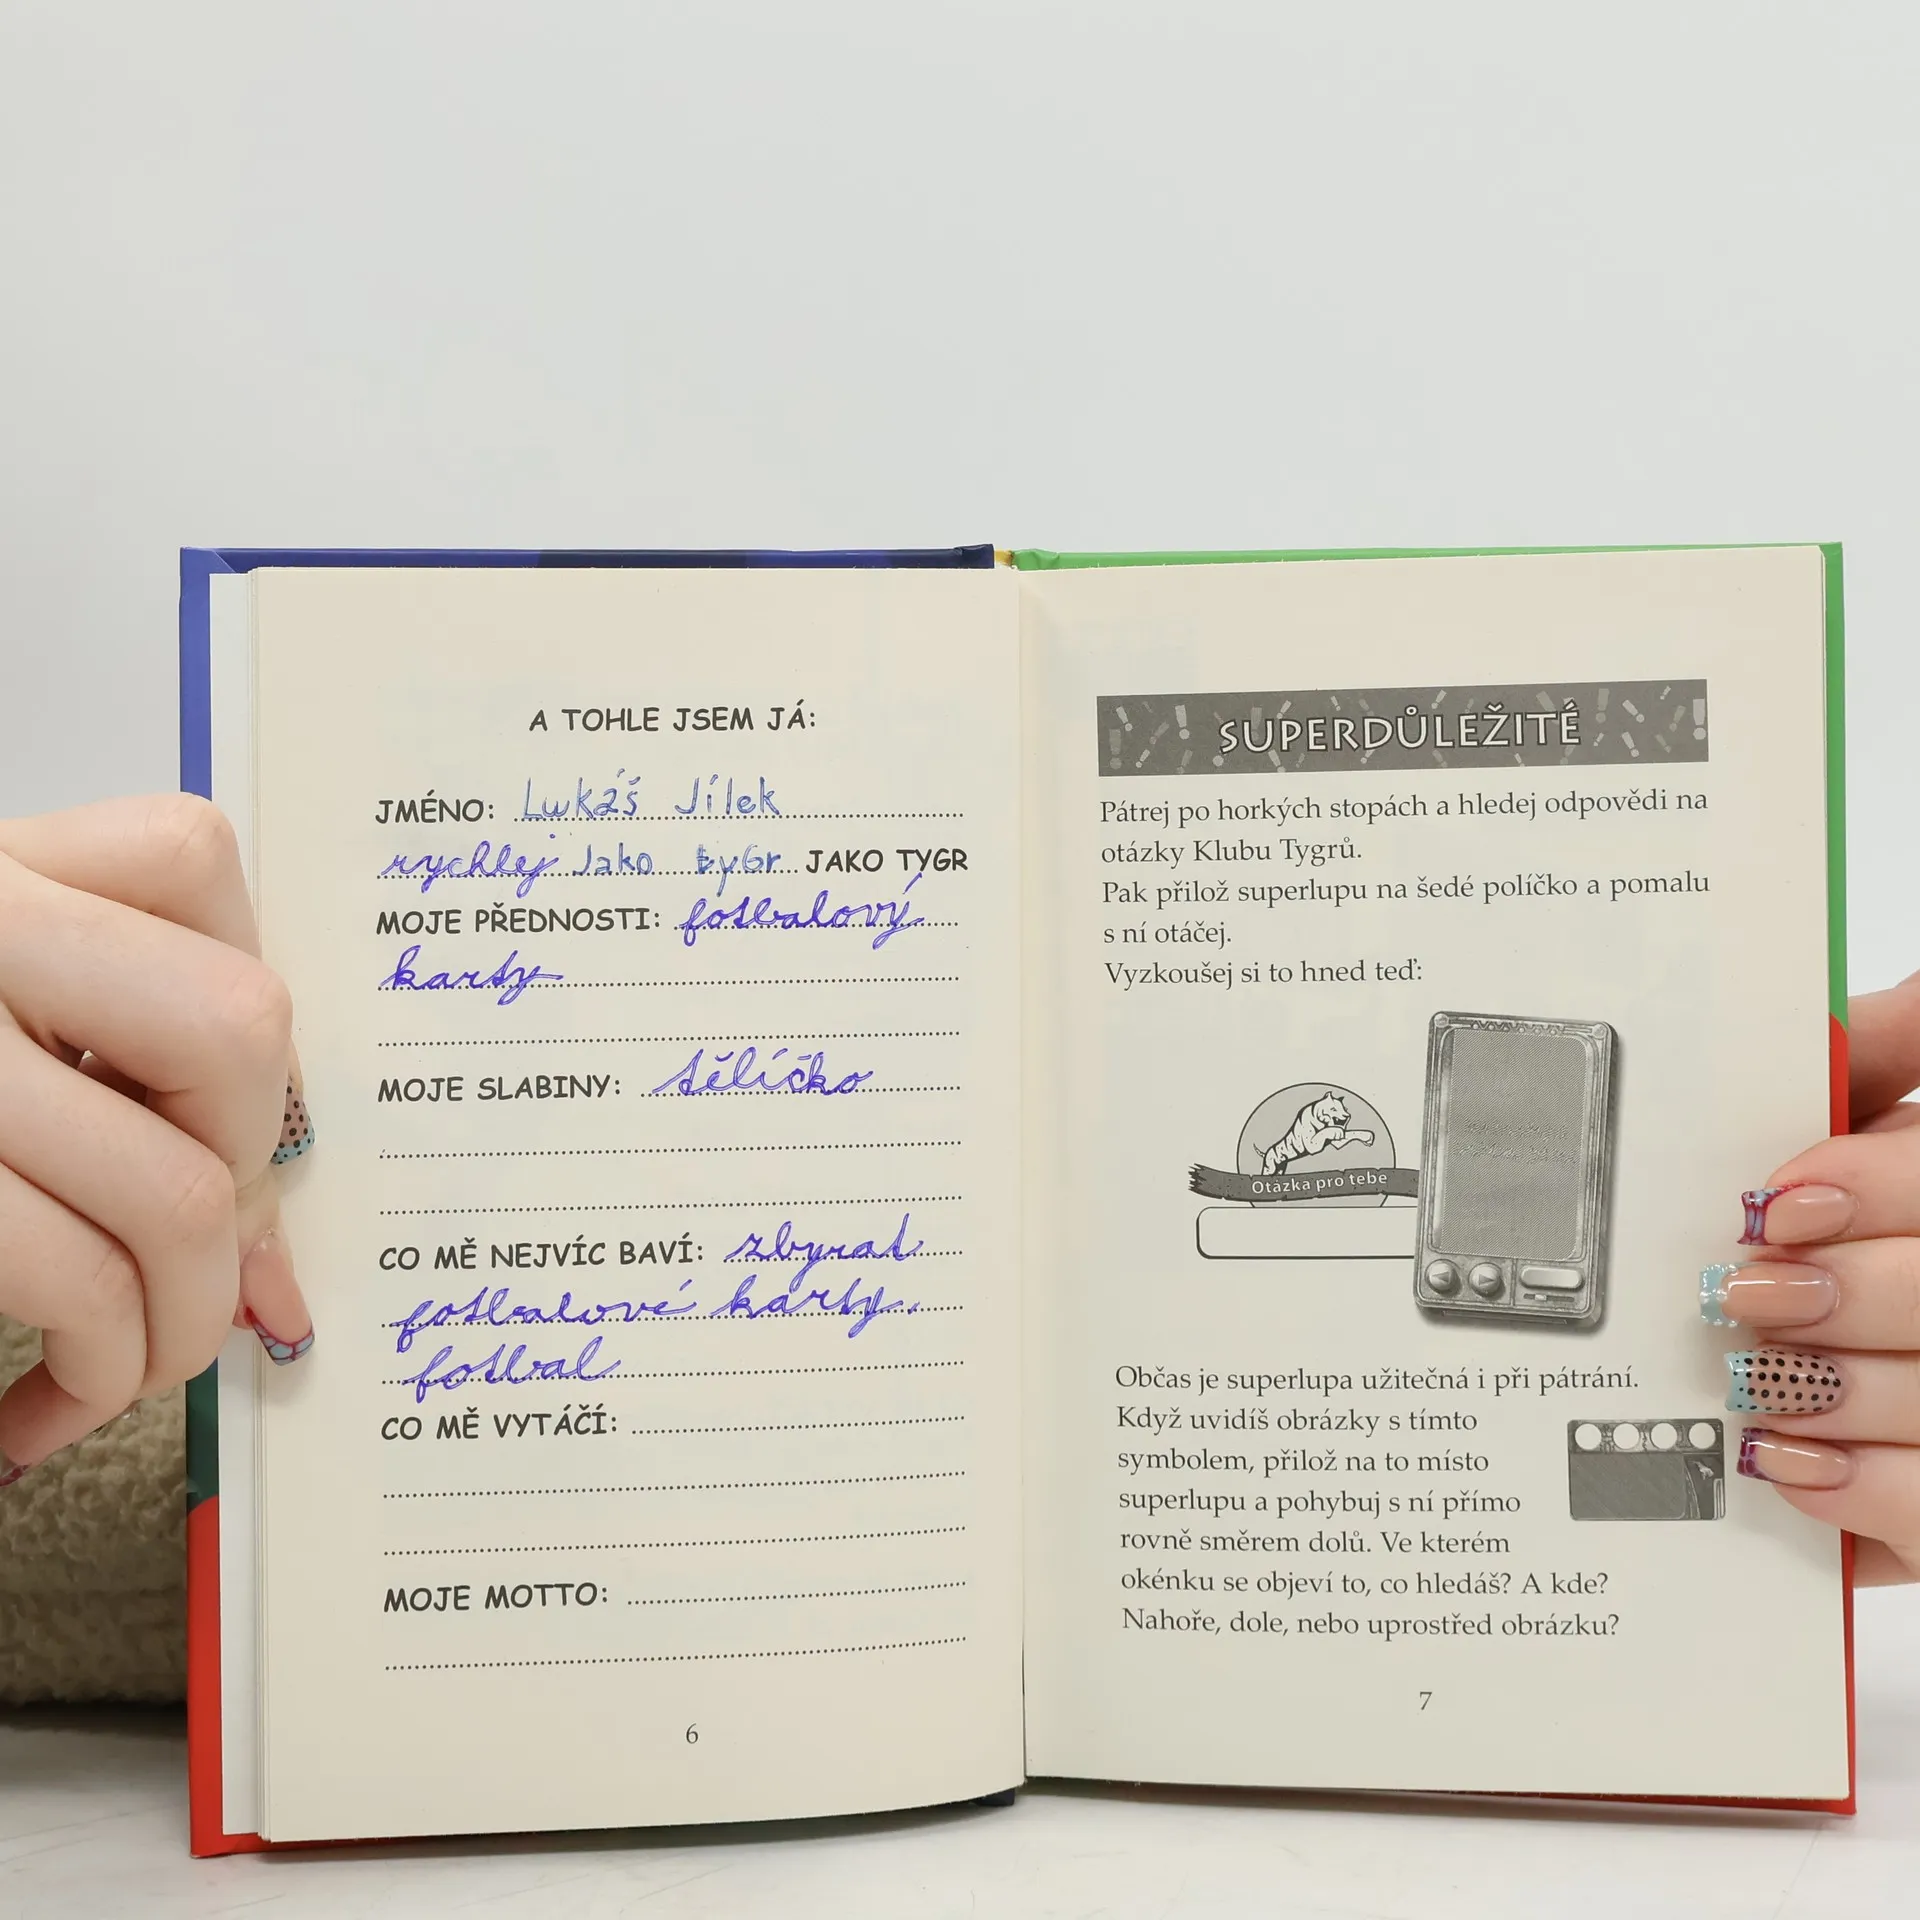 A TOHLE JSEM JÁ:
JMÉNO: Lukáš Jílek
rychlej Jako tyGr JAKO TYGR
MOJE PŘEDNOSTI: fotbalový
karty
MOJE SLABINY: tělíčko
CO MĚ NEJVÍC BAVÍ: zbyrat
fotbalové karty.
fotbal
CO MĚ VYTÁČÍ:
MOJE MOTTO:
6
SUPERDŮLEŽITÉ
Pátrej po horkých stopách a hledej odpovědi na
otázky Klubu Tygrů.
Pak přilož superlupu na šedé políčko a pomalu
s ní otáčej.
Vyzkoušej si to hned teď:
Otázka pro tebe
Občas je superlupa užitečná i při pátrání.
Když uvidíš obrázky s tímto
symbolem, přilož na to místo
superlupu a pohybuj s ní přímo
rovně směrem dolů. Ve kterém
okénku se objeví to, co hledáš? A kde?
Nahoře, dole, nebo uprostřed obrázku?
7